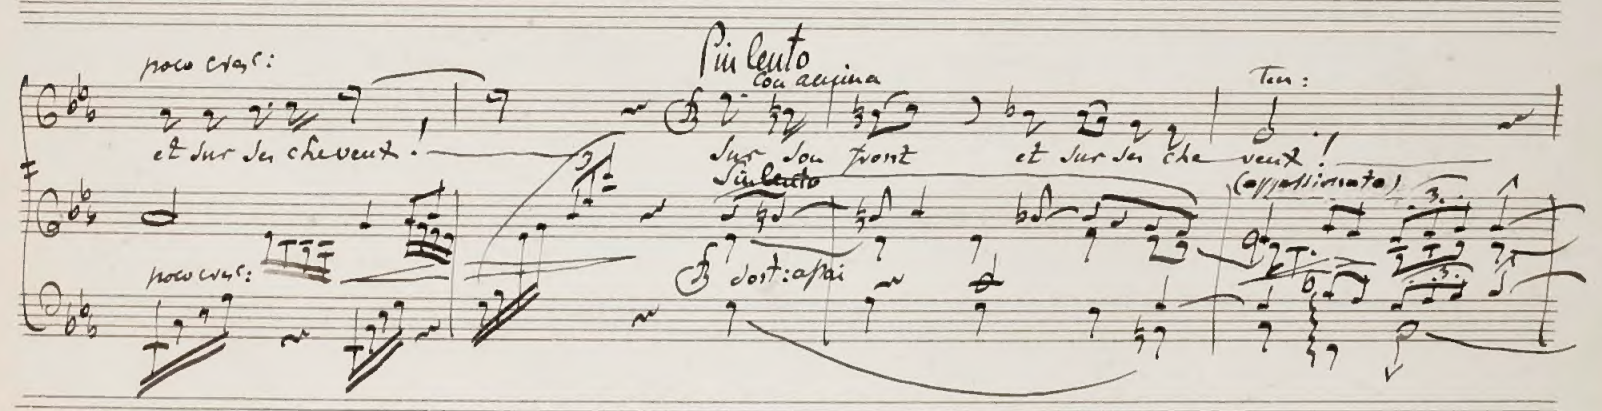 Piu lento
poco cresc:
con anima
Ten:
et sur ses cheveux! sur son front et sur ses cheveux!
Piu lento
(appassionata)
3.
poco cresc:
sost: assai
3.